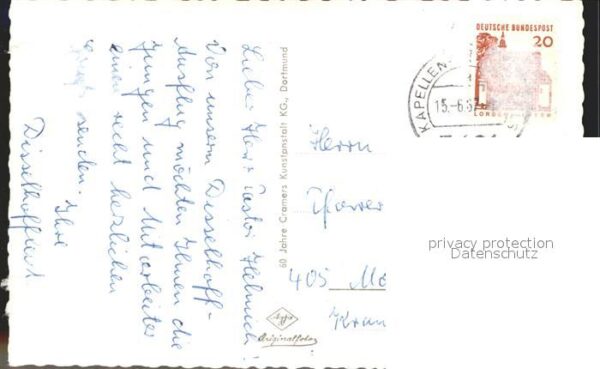 Lieber Herr Pastor Helmich!
Von unserm Disselhoff-
Ausflug möchten Ihnen die
Jungen und Mitarbeiter
einen recht herzlichen
Gruß senden. Ihre
Disselhoffiert
60 Jahre Cramers Kunstanstalt KG., Dortmund
Agfa
Originalfoto
DEUTSCHE BUNDESPOST
20
LORSCH
KAPELLEN
15.-6.67
Herrn
Pfarrer
405 Mö
Kran
privacy protection
Datenschutz